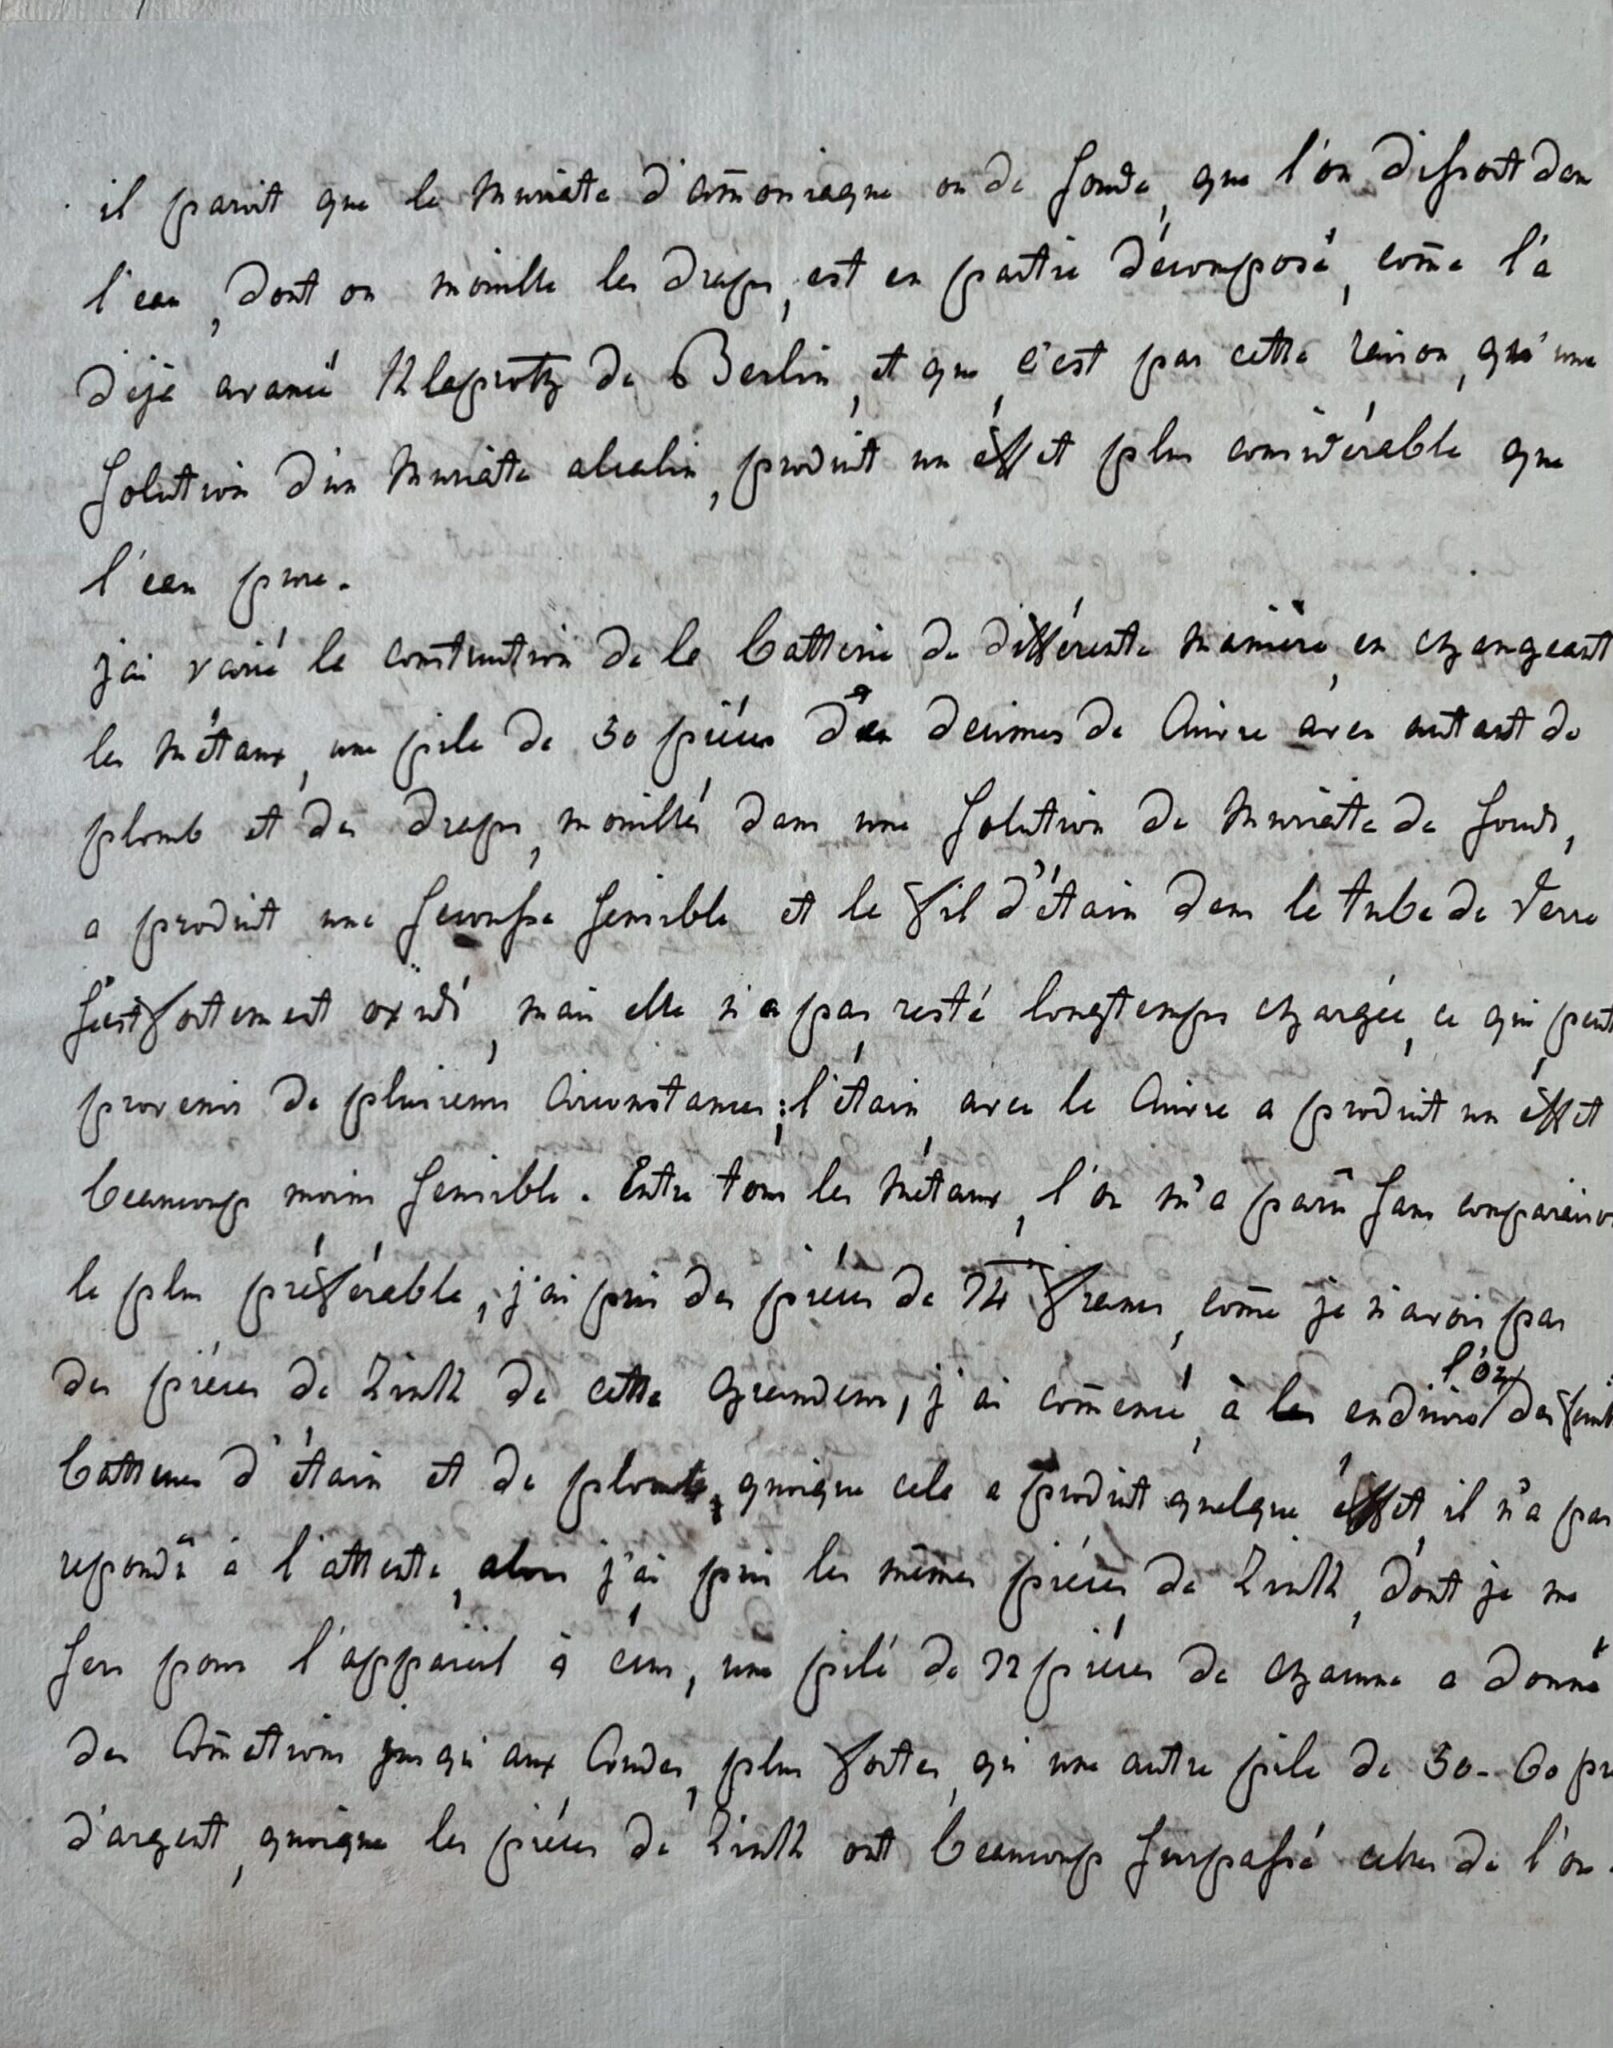 il paroit que le Muriate d'amõniaque ou de soude, que l'on dissout dan
l'eau, dont on mouille les draps, est en partie décomposé, com̃e l'a
deja avancé Klaproth de Berlin, et que, c'est par cette raison, qu'une
solution d'un Muriate alcalin, produit un éffet plus considérable que
l'eau pure.
j'ai varié la construction de la batterie de différente Manière, en changeant
les Métaux, une pile de 50 piéces de decimes de Cuivre avec autant de
plomb et des draps, mouillés dans une solution de Muriate de soude,
a produit une secousse sensible et le fil d'étain dans le tube de Verre
s'est fortement oxidé, mais elle n'a pas resté longtemps chargée, ce qui peut
provenir de plusieurs Circonstances; l'étain, avec le Cuivre a produit un éffet
beaucoup moins sensible. Entre tous les Métaux, l'or m'a parû sans comparaiso
le plus préférable, j'ai pris des piéces de 24 francs, com̃e je n'avois pas
des piéces de Zinck de cette grandeur, j'ai com̃encé, à enduire l'or des
batteries d'étain et de plomb, quoique cela a produit quelque éffet, il n'a pas
repondû a l'attente, alors j'ai pris les mêmes piéces de Zinck, dont je me
sers pour l'appareil à écus, une pile de 12 piéces de chacune a donné
des Com̃otions jusqu'aux Coudes, plus fortes, qu'une autre pile de 50-60 p
d'argent, quoique les piéces de Zinck ont beaucoup surpassé celles de l'or.